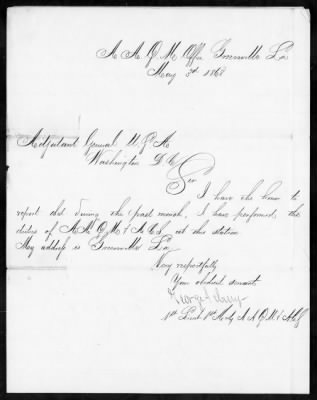 A. A. Q. M. Office Greenville La
May 3rd 1868
Adjutant General U.S.A
Washington D.C.
Sir
I have the honor to
report that during the past month, I have performed the
duties of A.A.Q.M. & A.C.S. at this station
My address is Greenville La
Very respectfully
Your obedient servant
1st Lieut A.A.Q.M. & A.C.S